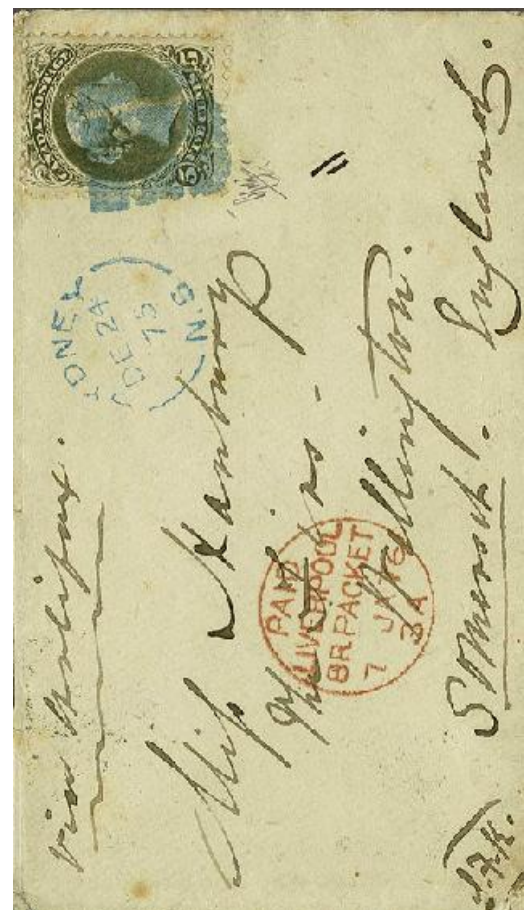 CANADA POSTAGE
15
15
YDNEY
DE 24
75
N.S
via Halifax.
Miss Stanbury
Wellington.
Somerset. England.
PAID
LIVERPOOL
BR. PACKET
7 JA 76
3A